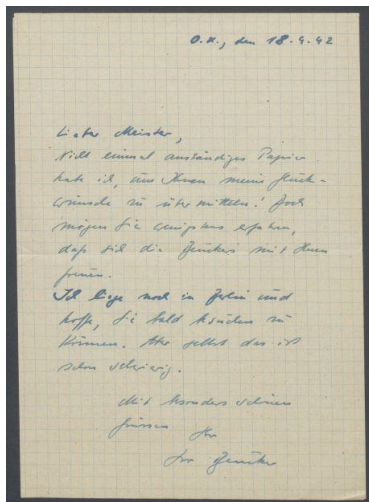 O.U., den 18.4.42
Lieber Meister,
Nicht einmal anständiges Papier
habe ich, um Ihnen meine Glück-
wünsche zu übermitteln! Doch
mögen Sie wenigstens erfahren,
daß sich die mit Ihnen
freuen.
Ich liege noch in Berlin und
hoffe, Sie bald besuchen zu
können. Aber selbst das ist
schon schwierig.
Mit besonders schönen
Grüssen Ihr